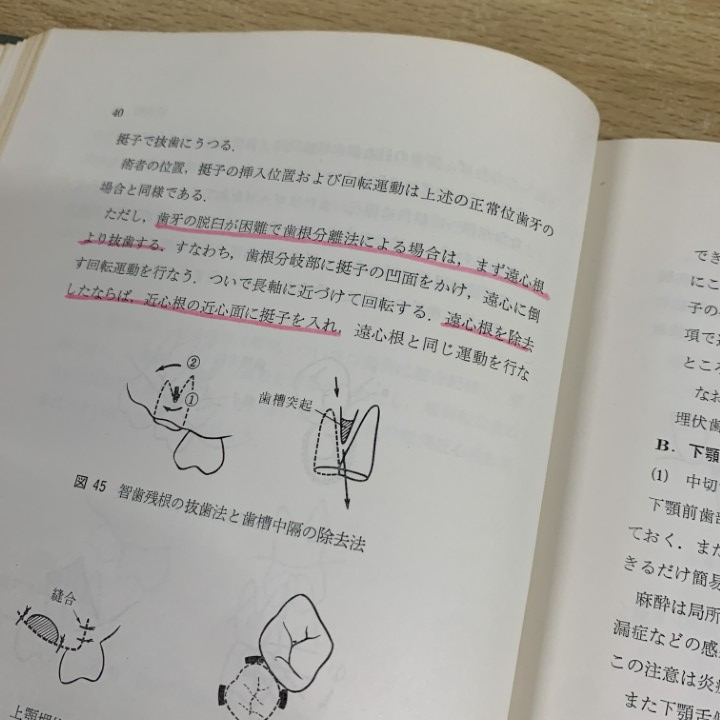 40
挺子で抜歯にうつる.
術者の位置，挺子の挿入位置および回転運動は上述の正常位歯牙の
場合と同様である.
ただし，歯牙の脱臼が困難で歯根分離法による場合は，まず遠心根
より抜歯する．すなわち，歯根分岐部に挺子の凹面をかけ，遠心に倒
す回転運動を行なう．ついで長軸に近づけて回転する．遠心根を除去
したならば，近心根の近心面に挺子を入れ，遠心根と同じ運動を行な
②
①
歯槽突起
図 45 智歯残根の抜歯法と歯槽中隔の除去法
縫合
上顎埋
でき
にこ
子の
項で
ところ
なお
埋伏歯
B. 下顎
(1) 中切
下顎前歯部
ておく．また
きるだけ簡易
麻酔は局所
漏症などの感
この注意は炎
また下顎舌